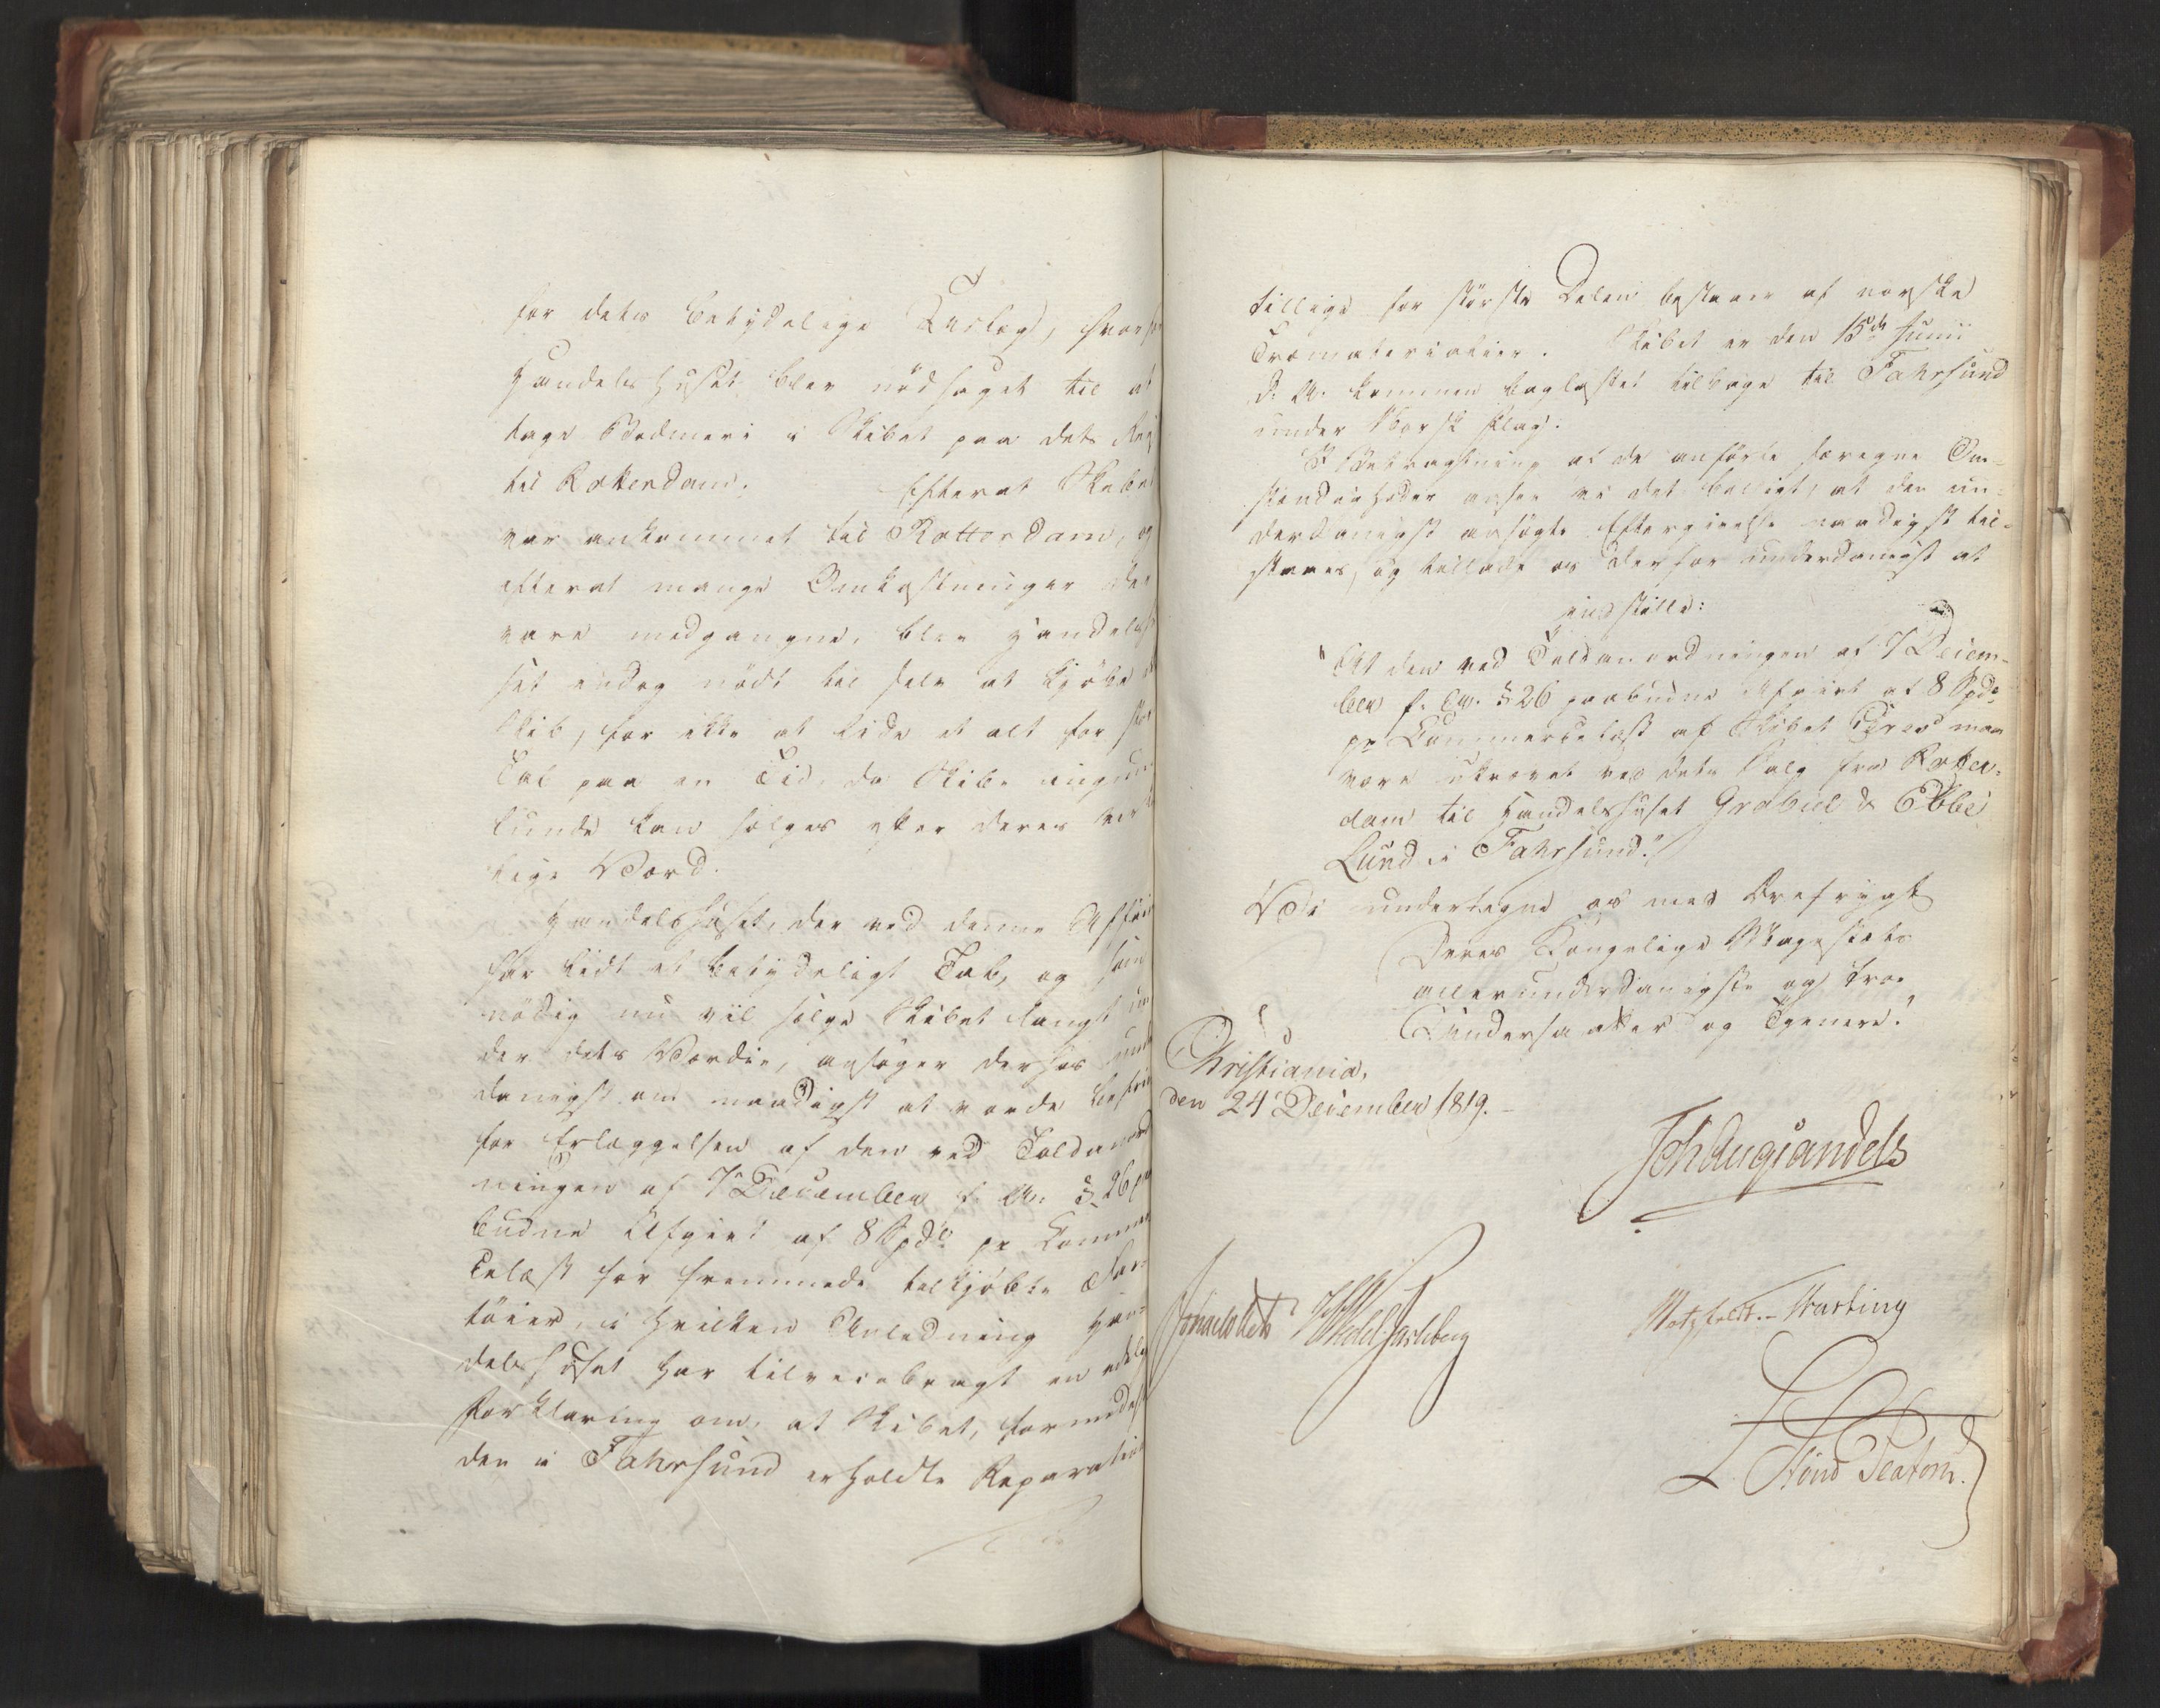 for dets betydelige Udlæg, hvor
Handelshuset blev nödsaget til at
tage Bodmeri i Skibet paa dets
til Rotterdam. Efterat Skibet
var ankommet til Rotterdam, og
efterat mange Omkostninger der
vare medgangne, blev Handels
set endog nödt til selv at kjöbe
Skib, for ikke at lide et alt for
Tab paa en Tid, da Skibe ingen
lunde kan sælges efter deres
lige Værd.
Handelshuset, der ved denne
har lidt et betydeligt Tab, og som
nödig nu vil sælge Skibet langt un
der dets Værdie, ansöger derfor
danigst om naadigst at vorde
for Erlæggelsen af den ved Toldanord
ningen af 7 December f. A. § 26
budne Afgivt af 8 Spdr pr Commer
celæst for fremmede tilkjöbte Far-
töier, i hvilken Anledning Han-
delshuset har tilveiebragt en edelig
Forklaring om, at Skibet, formedelst
den i Fahrsund erholdte Reparation
tillige for störste Delen bestaaer af norske
Træmaterialier. Skibet er den 15de Junii
d. A. kommen baglastet tilbage til Fahrsund
under Norsk Flag.
I Betragtning af de anförte særegne Om-
stændigheder ansee vi det billigt, at den un-
derdanigst ansögte Eftergivelse naadigst til-
staaes, og tillade os derfor underdanigst at
indstille:
"At den ved Toldanordningen af 7 Decem-
ber f. A. § 26 paabudne Afgivt af 8 Spdr
pr Commercelæst af Skibet maa
være ukrævet ved dets Salg fra Rotter-
dam til Handelshuset Gabriel & Ebbe
Lund i Fahrsund."
Vi undertegne os med Ærefrygt
Deres Kongelige Majestæts
allerunderdanigste og troe
Undersaatter og Tjenere.
Christiania,
den 24 December 1819.
Joh Aug Sandels
Wedel Jarlsberg
Motzfeldt.